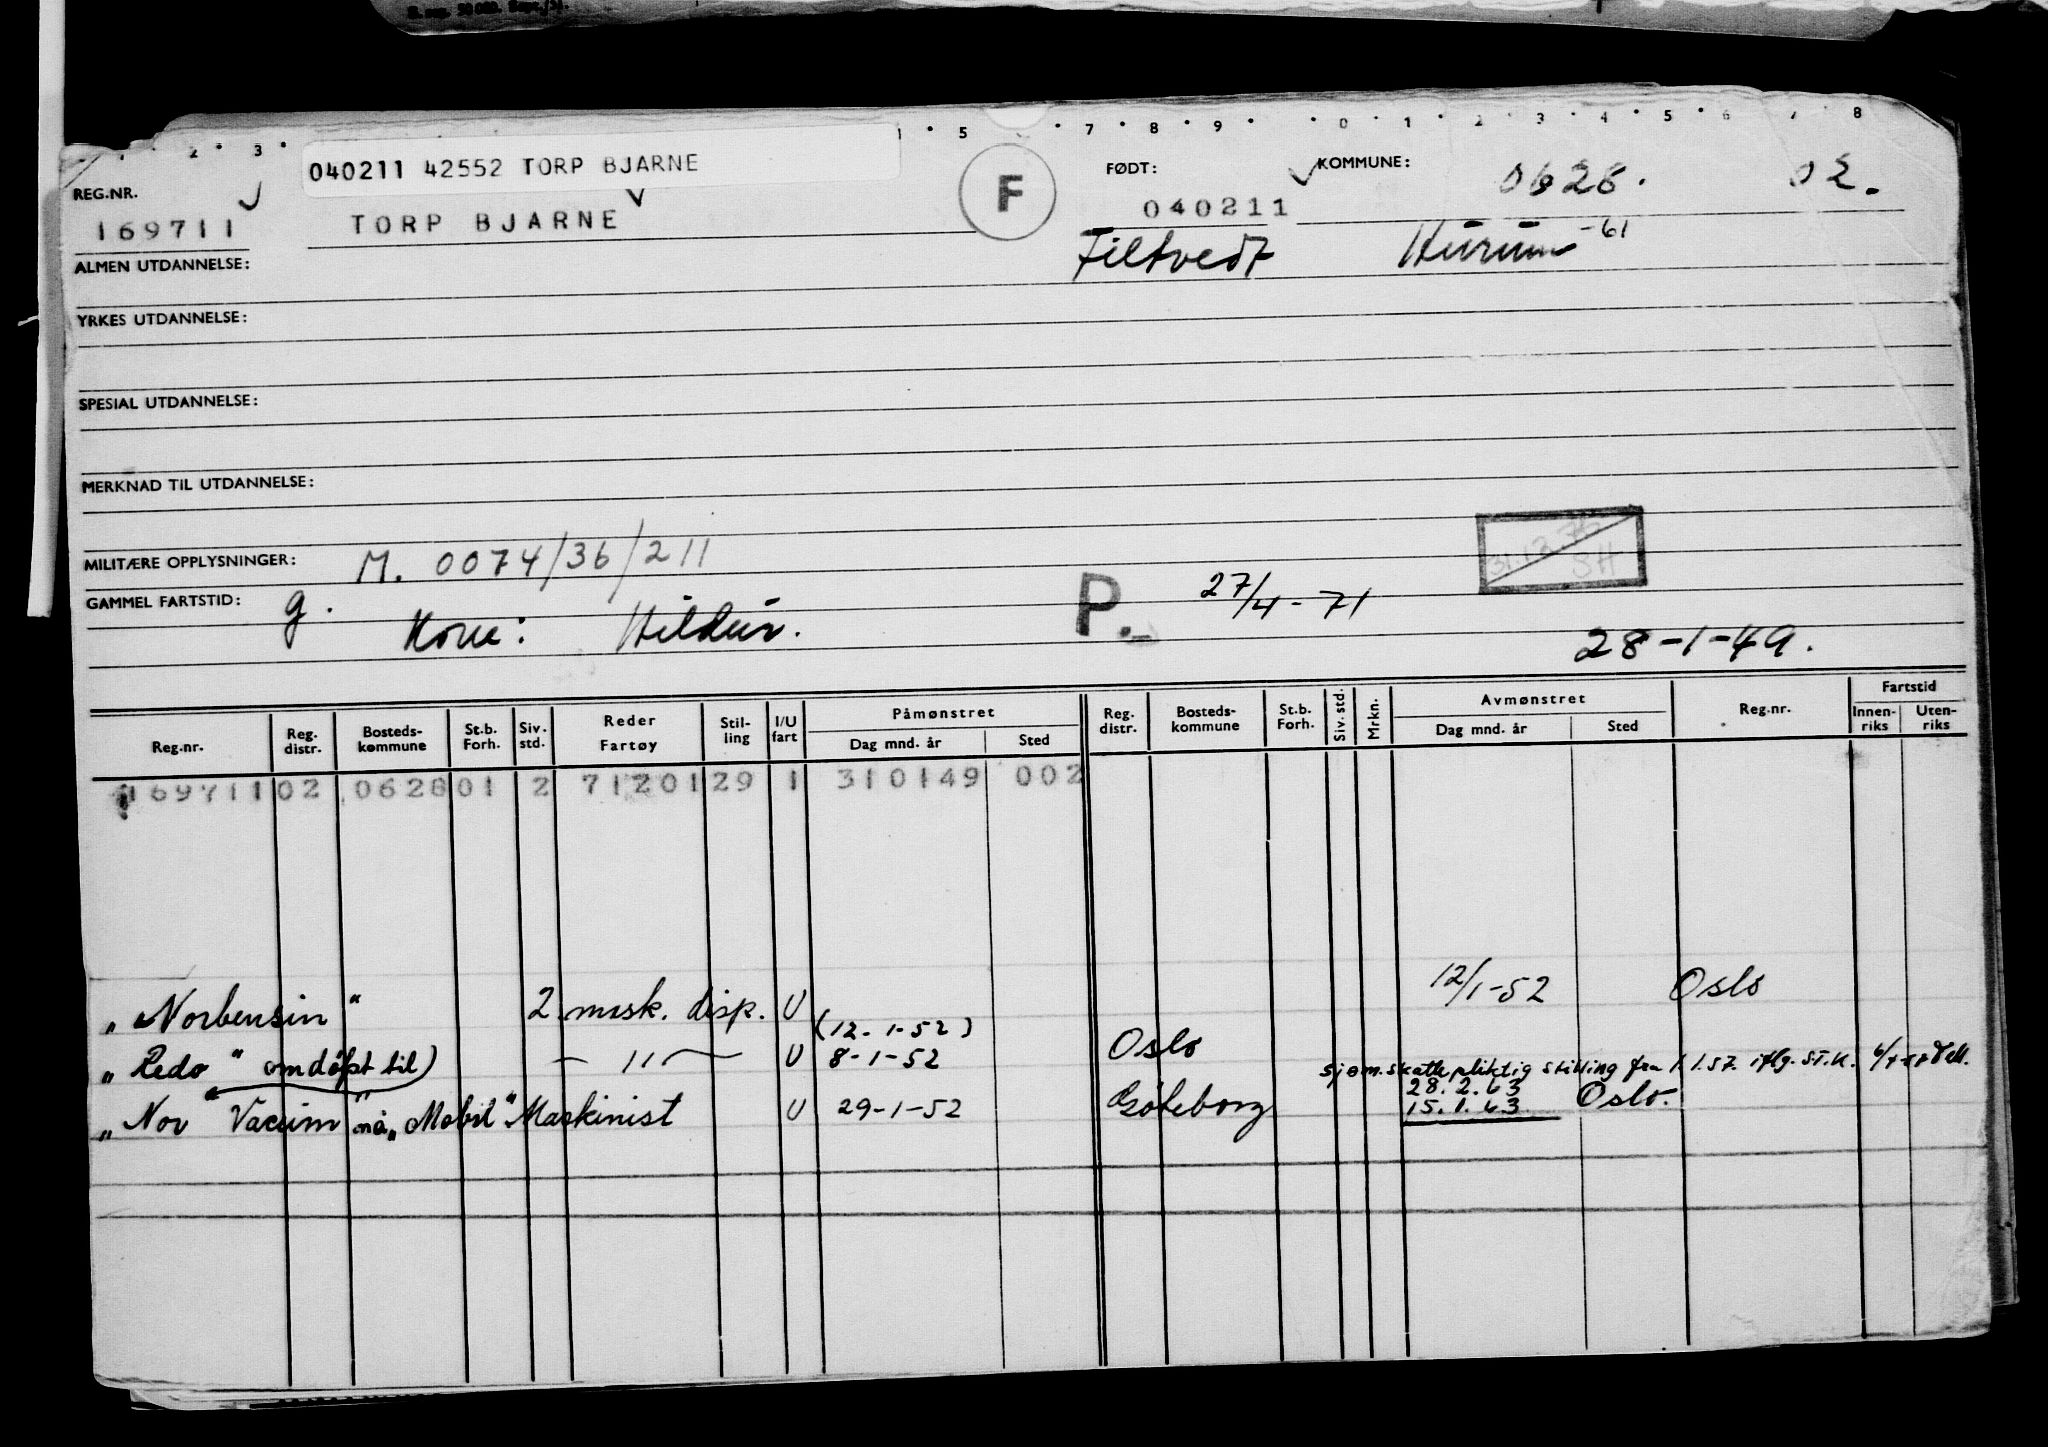 1 2 3 5 7 8 9 0 1 2 3 4 5 6 7 8
040211 42552 TORP BJARNE
REG.NR.
169711
TORP BJARNE
F
FØDT:
040211
KOMMUNE:
0628. 02.
Filtvedt
Hurum -61
ALMEN UTDANNELSE:
YRKES UTDANNELSE:
SPESIAL UTDANNELSE:
MERKNAD TIL UTDANNELSE:
MILITÆRE OPPLYSNINGER: M. 0074/36/211
31.12.75
SH
GAMMEL FARTSTID: g.
Kone: Hildur.
P.
27/4-71
28-1-49.
Reg.nr. Reg. distr. Bosteds-kommune St.b. Forh. Siv. std. Reder Fartøy Stil-ling I/U fart Påmønstret Dag mnd. år Sted Reg. distr. Bosteds-kommune St.b. Forh. Siv. std. Mrkn. Avmønstret Dag mnd. år Sted Reg.nr. Fartstid Innen-riks Uten-riks
169711 02 0628 01 2 71201 29 1 310149 002
„Norbensin" 2 mask. disp. U 12/1-52 Oslo
(12-1-52)
„Redo" omdöpt til) — 11 — U 8-1-52 Oslo
sjøm.skatte pliktig stilling fra 1.1.57. iflg. ST.K.
28.2.63
„Nor Vacum" nå „Mobil" Maskinist U 29-1-52 Göteborg 15.1.63 Oslo.